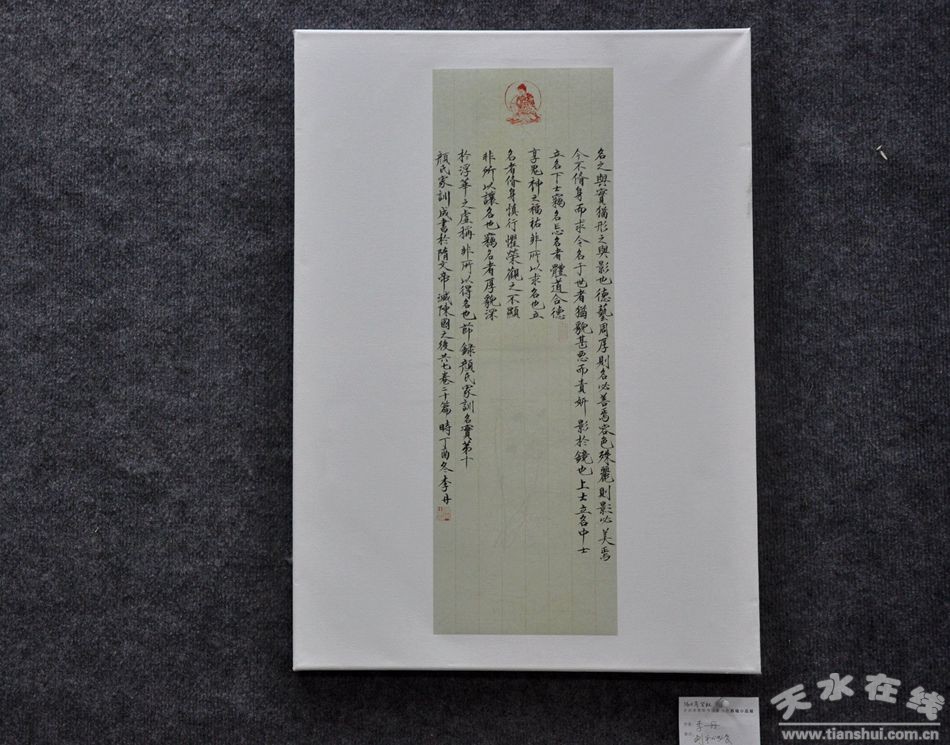 名之與實猶形之與影也德藝周厚則名必善焉容色殊麗則影必美焉
今不脩身而求令名于世者猶貌甚惡而責妍影於鏡也上士立名中士
立名下士竊名忘名者體道合德
享鬼神之福祐非所以求名也立
名者脩身慎行懼榮觀之不顯
非所以讓名也竊名者厚貌深
於浮華之虛稱非所以得名也節錄顏氏家訓名實第十
顏氏家訓成書於隋文帝滅陳國之後共七卷二十篇時丁酉冬李丹
李丹
天水在线
www.tianshui.com.cn